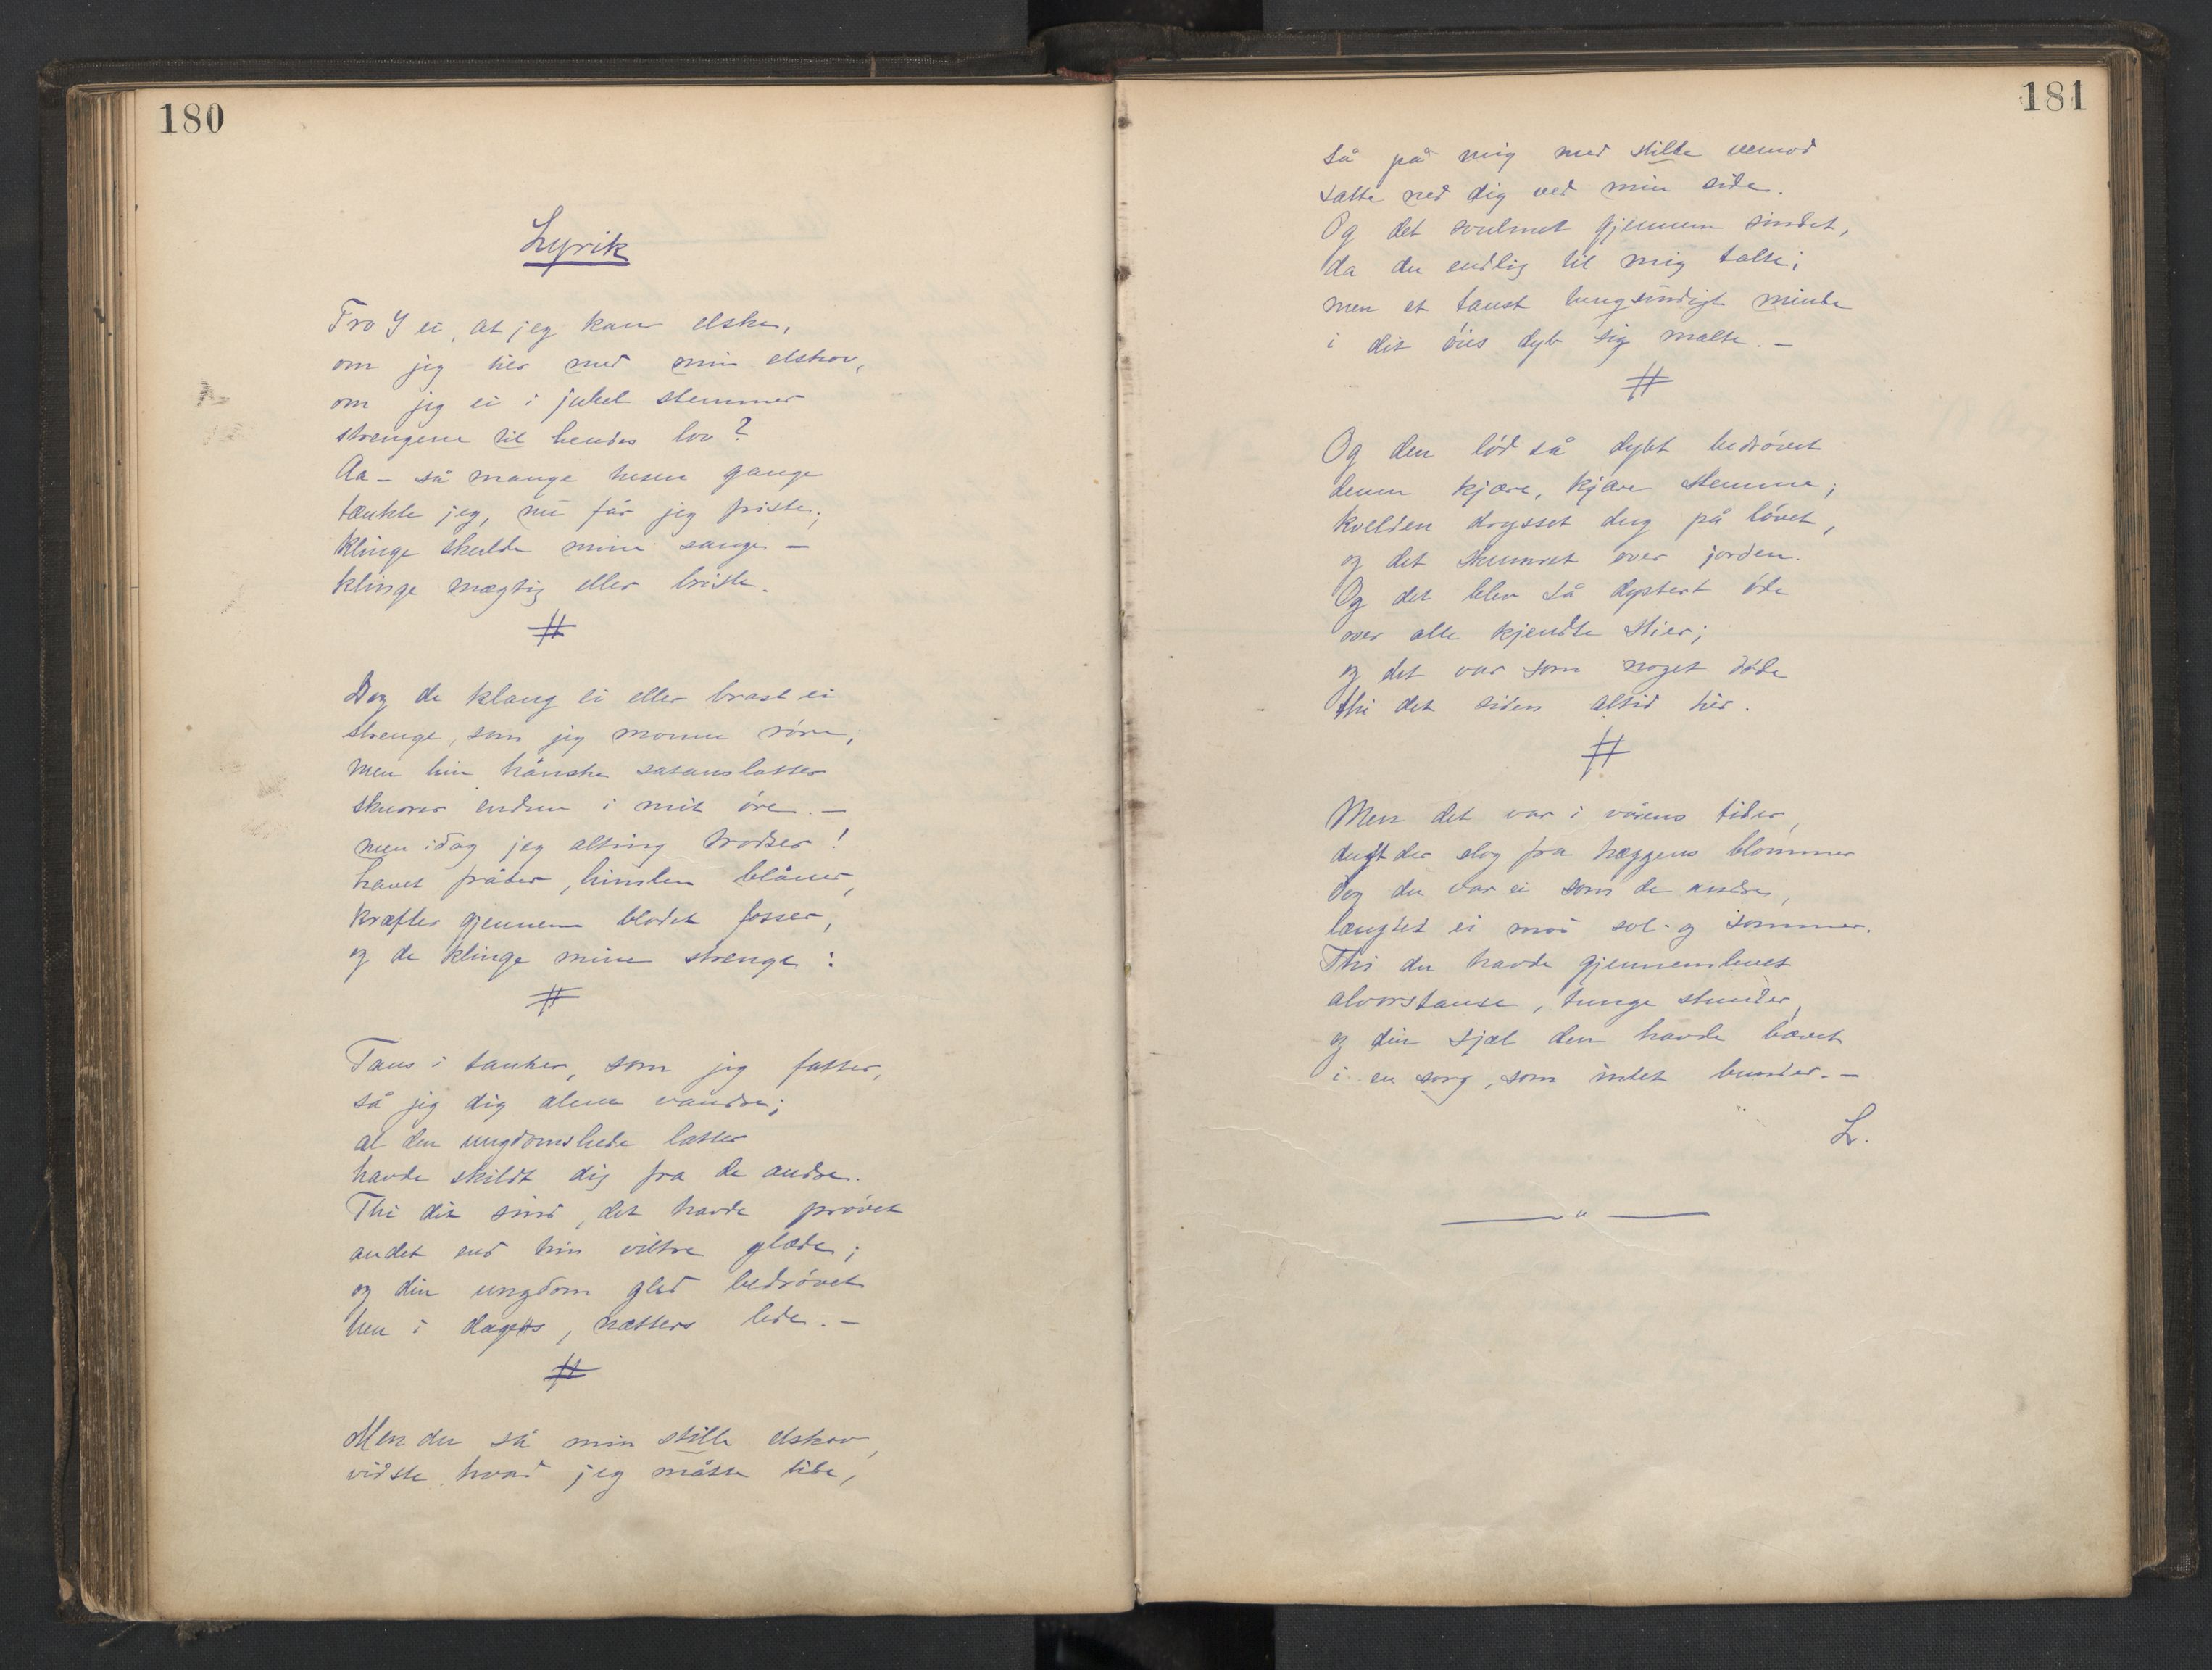 180
Lyrik
Tro I ei, at jeg kan elske,
om jeg tier med min elskov,
om jeg ei i jubel stemmer
strengene til hendes lov?
Aa – så mange tusen gange
tænkte jeg, nu får jeg friste;
klinge skulde mine sange –
klinge mægtig eller briste.
#
Dog de klang ei eller brast ei
strenge, som jeg monne røre;
men hin hånske satanslatter
skurrer endnu i mit øre. –
men idag jeg alting trodser!
havet fråder, himlen blåner,
kræfter gjennem blodet fosser,
og de klinge mine strenge:
#
Taus i tanker, som jeg fatter,
så jeg dig alene vandre;
al den ungdomshede latter
havde skildt dig fra de andre.
Thi dit sind, det havde prøvet
andet end hin viltre glæde;
og din ungdom gled bedrøvet
hen i dages, nætters lede. –
#
Men du så min stille elskov,
vidste hvad jeg måtte lide,
181
så på mig med stille vemod
satte ned dig ved min side.
Og det svulmet gjennem sindet,
da du endlig til mig talte;
men et taust tungsindigt minde
i dit øies dyb sig malte. –
#
Og den lød så dybt bedrøvet
denne kjære, kjære stemme;
kvelden drysset dug på løvet,
og det skumret over jorden.
Og det blev så dystert øde
over alle kjendte stier;
og det var som noget døde
thi det siden altid tier.
#
Men det var i vårens tider,
duft der slog fra hæggens blommer
dog du var ei som de andre,
længtet ei mod sol- og sommer.
Thi du havde gjennemlevet
alvorstause, tunge stunder,
og din sjæl den havde bævet
i en sorg, som intet bunder. –
L.